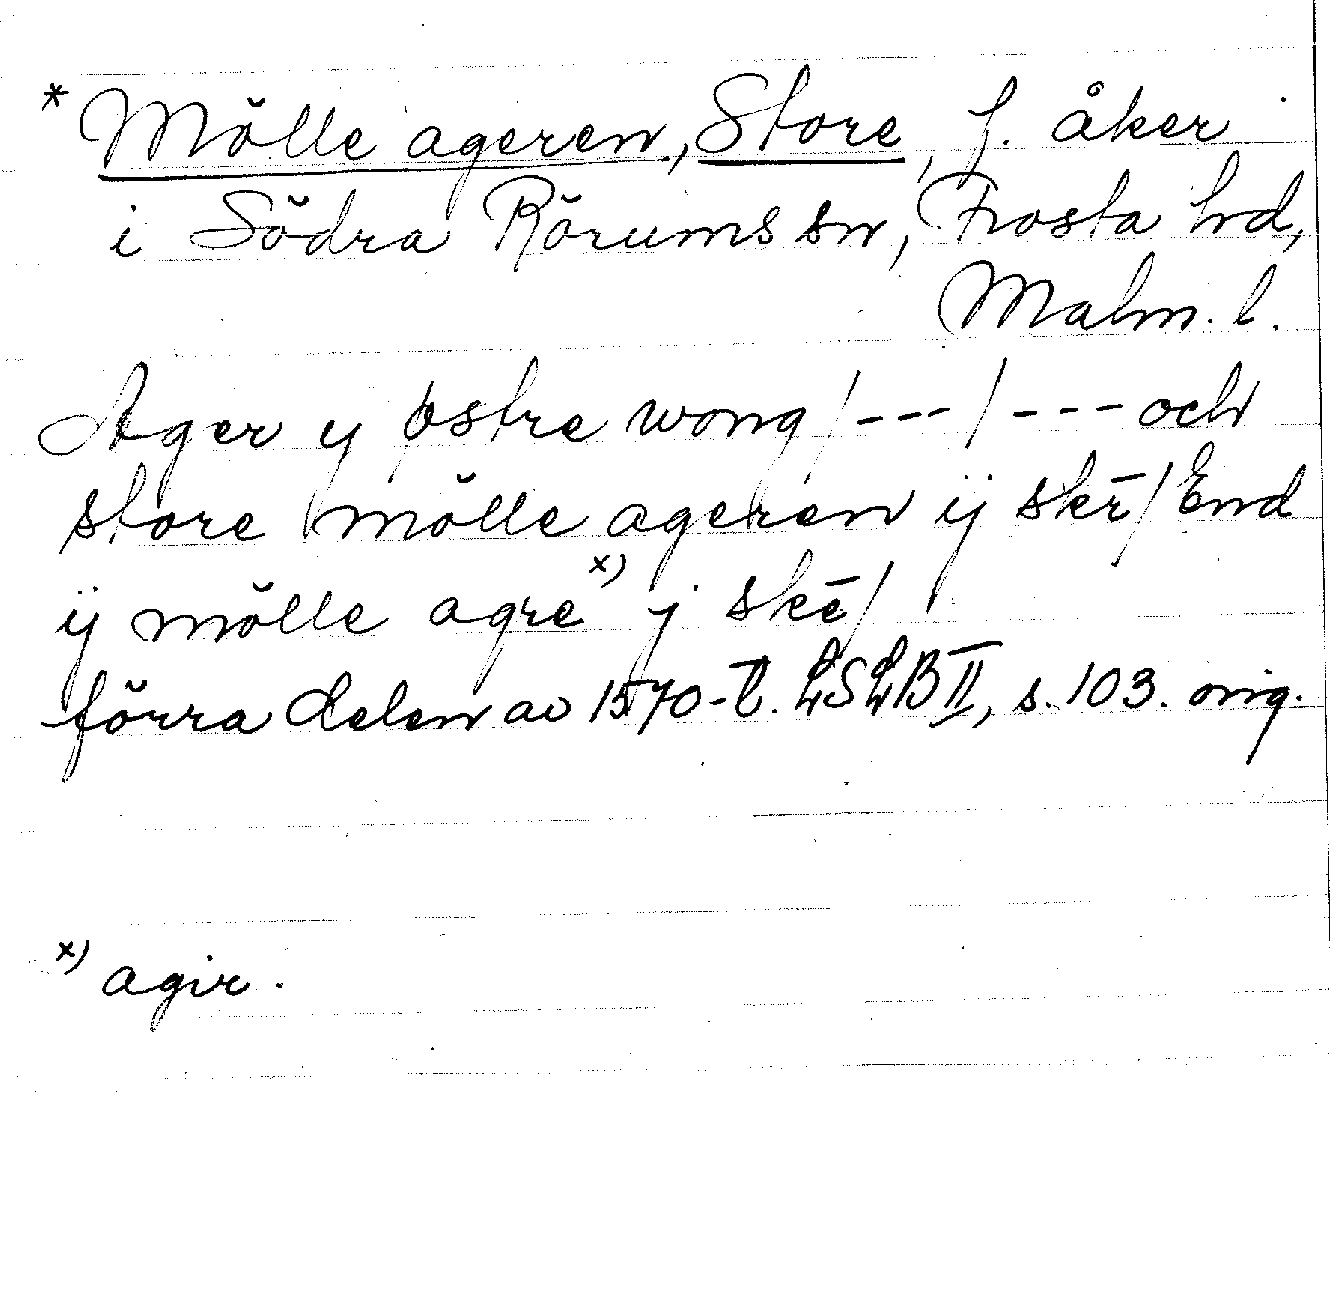 * Mölle ageren, Store, f. åker
i Södra Rörums sn, Frosta hd,
Malm. l.
Ager y østre wong /---/ --- och
store mölle ageren ij skē / End
ij mölle agre x) j skē /
förra delen av 1570-t. LSLB II, s. 103. orig.
x) agir.